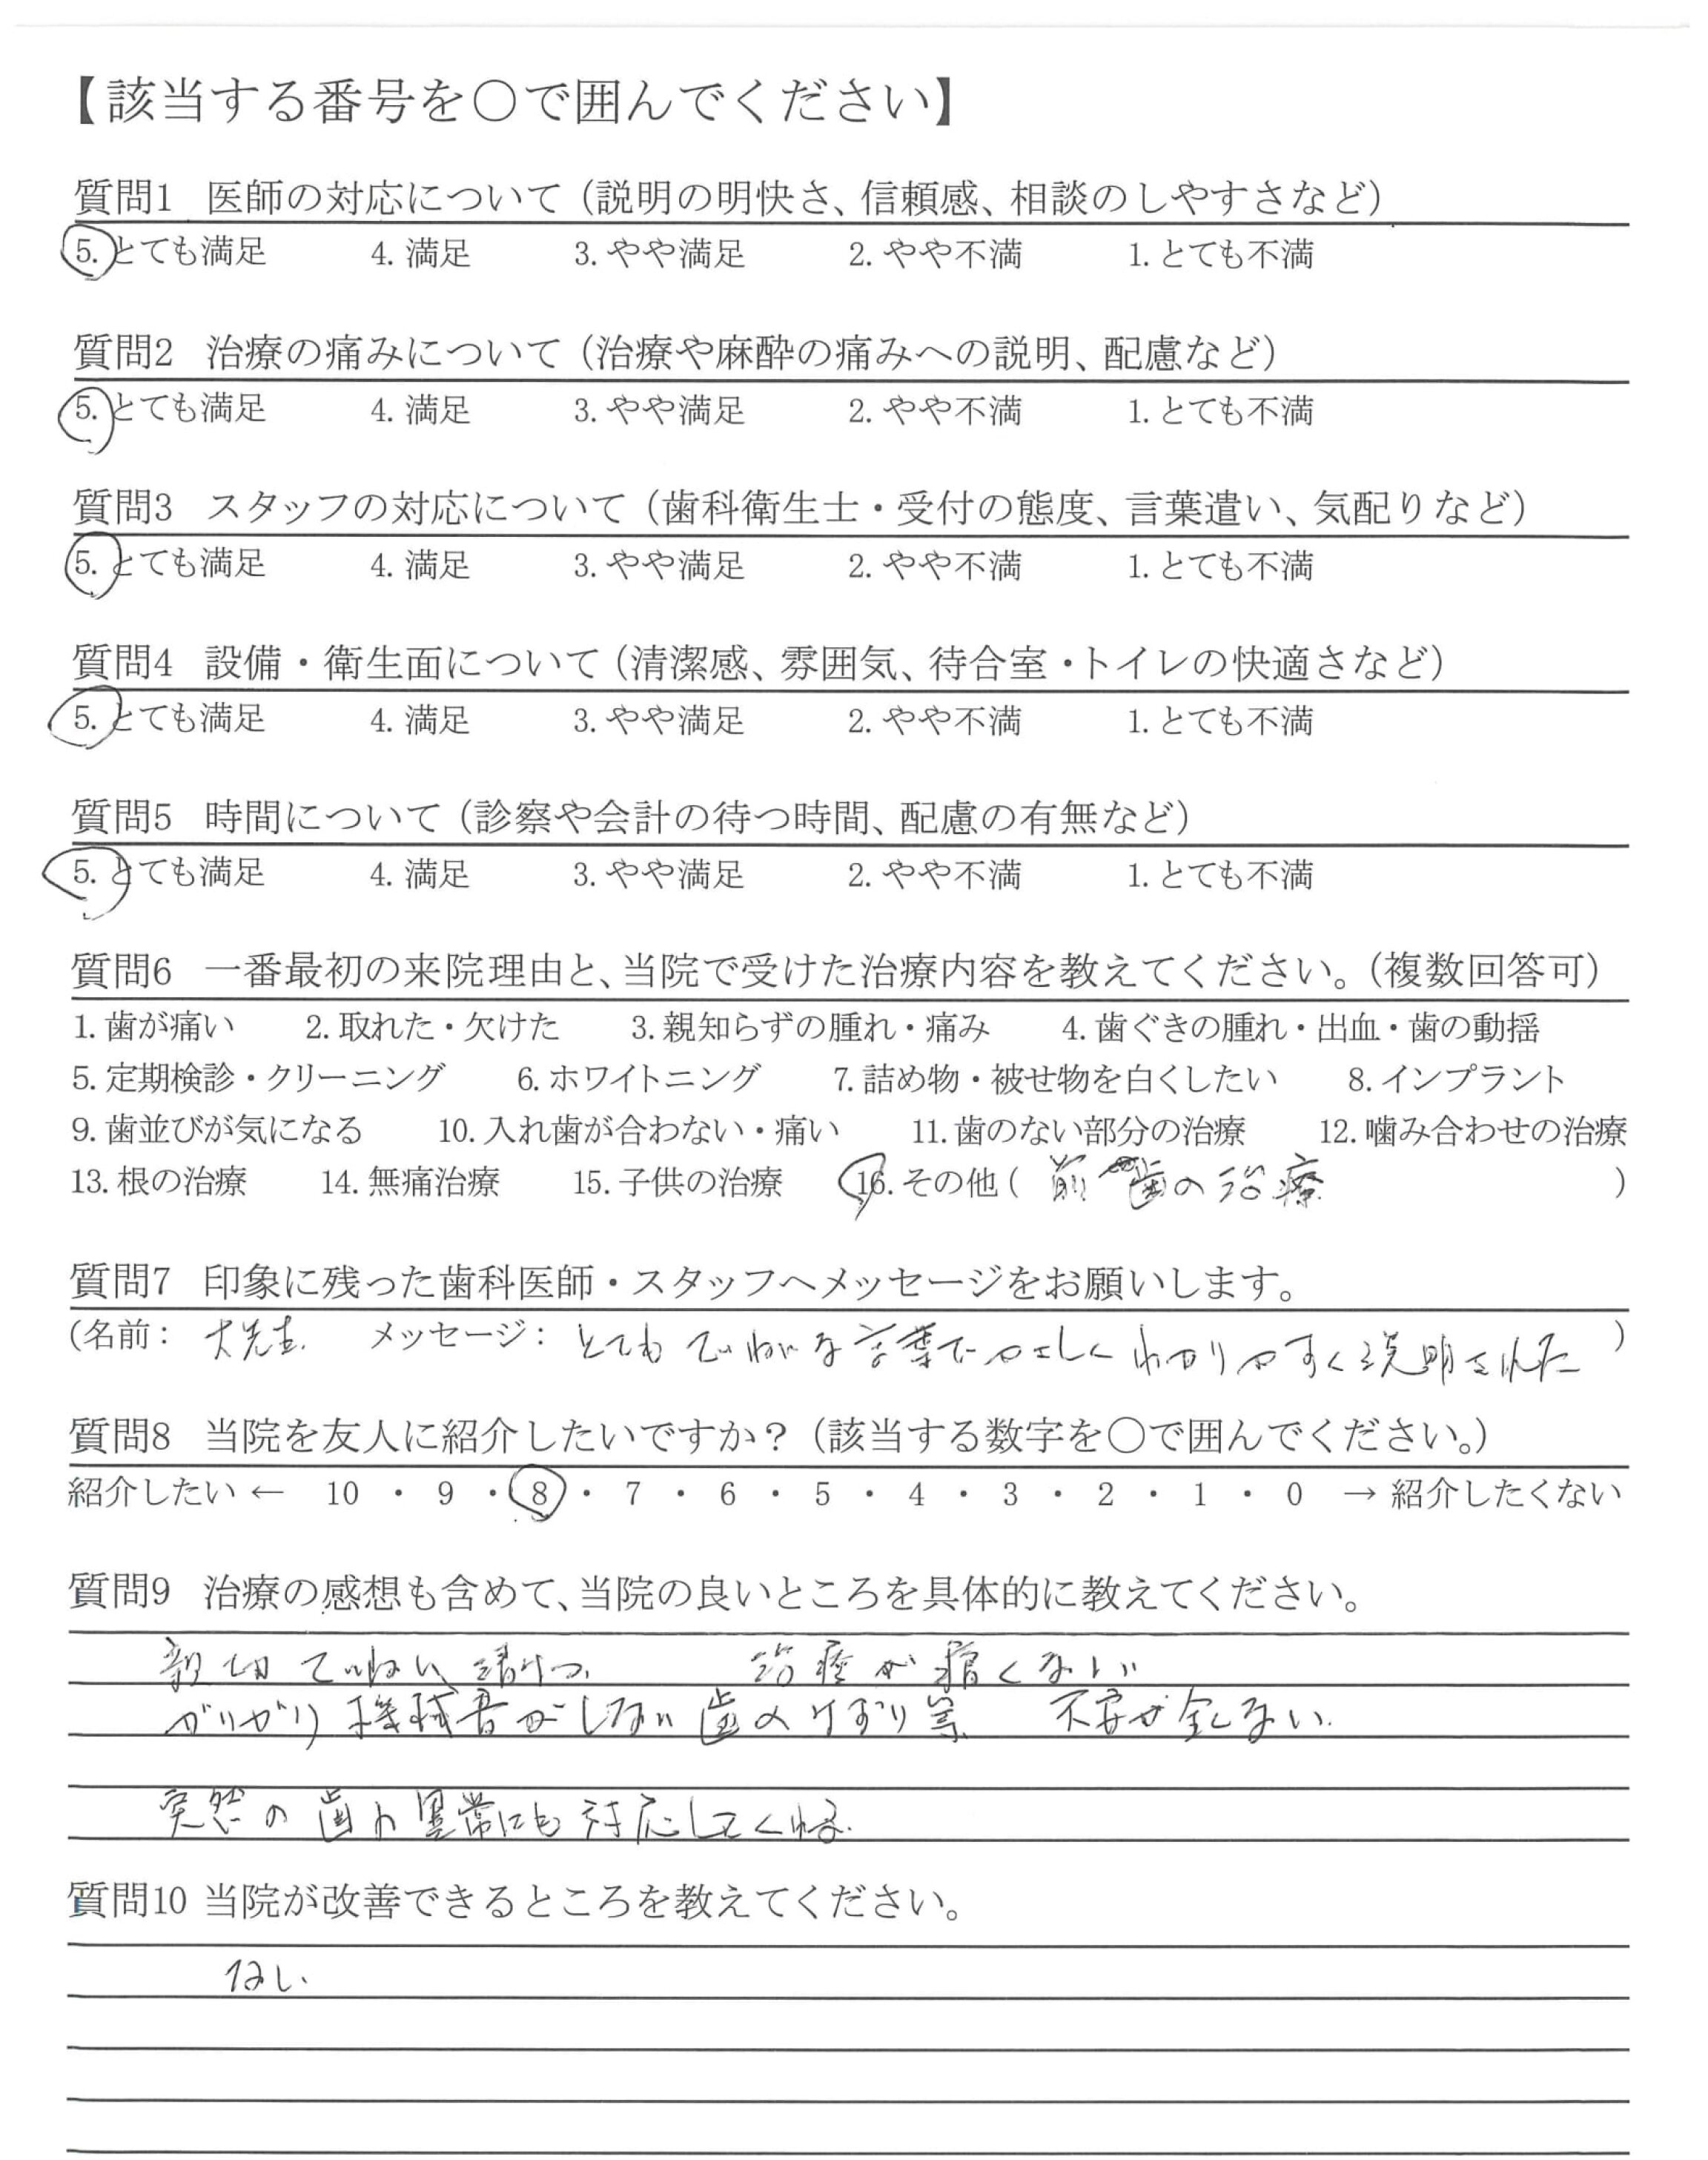 【該当する番号を○で囲んでください】
質問1 医師の対応について（説明の明快さ、信頼感、相談のしやすさなど）
5. とても満足 4. 満足 3. やや満足 2. やや不満 1. とても不満
質問2 治療の痛みについて（治療や麻酔の痛みへの説明、配慮など）
5. とても満足 4. 満足 3. やや満足 2. やや不満 1. とても不満
質問3 スタッフの対応について（歯科衛生士・受付の態度、言葉遣い、気配りなど）
5. とても満足 4. 満足 3. やや満足 2. やや不満 1. とても不満
質問4 設備・衛生面について（清潔感、雰囲気、待合室・トイレの快適さなど）
5. とても満足 4. 満足 3. やや満足 2. やや不満 1. とても不満
質問5 時間について（診察や会計の待つ時間、配慮の有無など）
5. とても満足 4. 満足 3. やや満足 2. やや不満 1. とても不満
質問6 一番最初の来院理由と、当院で受けた治療内容を教えてください。（複数回答可）
1. 歯が痛い 2. 取れた・欠けた 3. 親知らずの腫れ・痛み 4. 歯ぐきの腫れ・出血・歯の動揺
5. 定期検診・クリーニング 6. ホワイトニング 7. 詰め物・被せ物を白くしたい 8. インプラント
9. 歯並びが気になる 10. 入れ歯が合わない・痛い 11. 歯のない部分の治療 12. 噛み合わせの治療
13. 根の治療 14. 無痛治療 15. 子供の治療 16. その他（ 前歯の治療 ）
質問7 印象に残った歯科医師・スタッフへメッセージをお願いします。
（名前： 大先生. メッセージ： とてもていねいな言葉でやさしくわかりやすく説明された ）
質問8 当院を友人に紹介したいですか？（該当する数字を○で囲んでください。）
紹介したい ← 10 ・ 9 ・ 8 ・ 7 ・ 6 ・ 5 ・ 4 ・ 3 ・ 2 ・ 1 ・ 0 → 紹介したくない
質問9 治療の感想も含めて、当院の良いところを具体的に教えてください。
親切 ていねい 清けつ 治療が痛くない
ガリガリ機械音がしない歯のけずり等 不安が全くない.
突然の歯の異常にも対応してくれる.
質問10 当院が改善できるところを教えてください。
ない